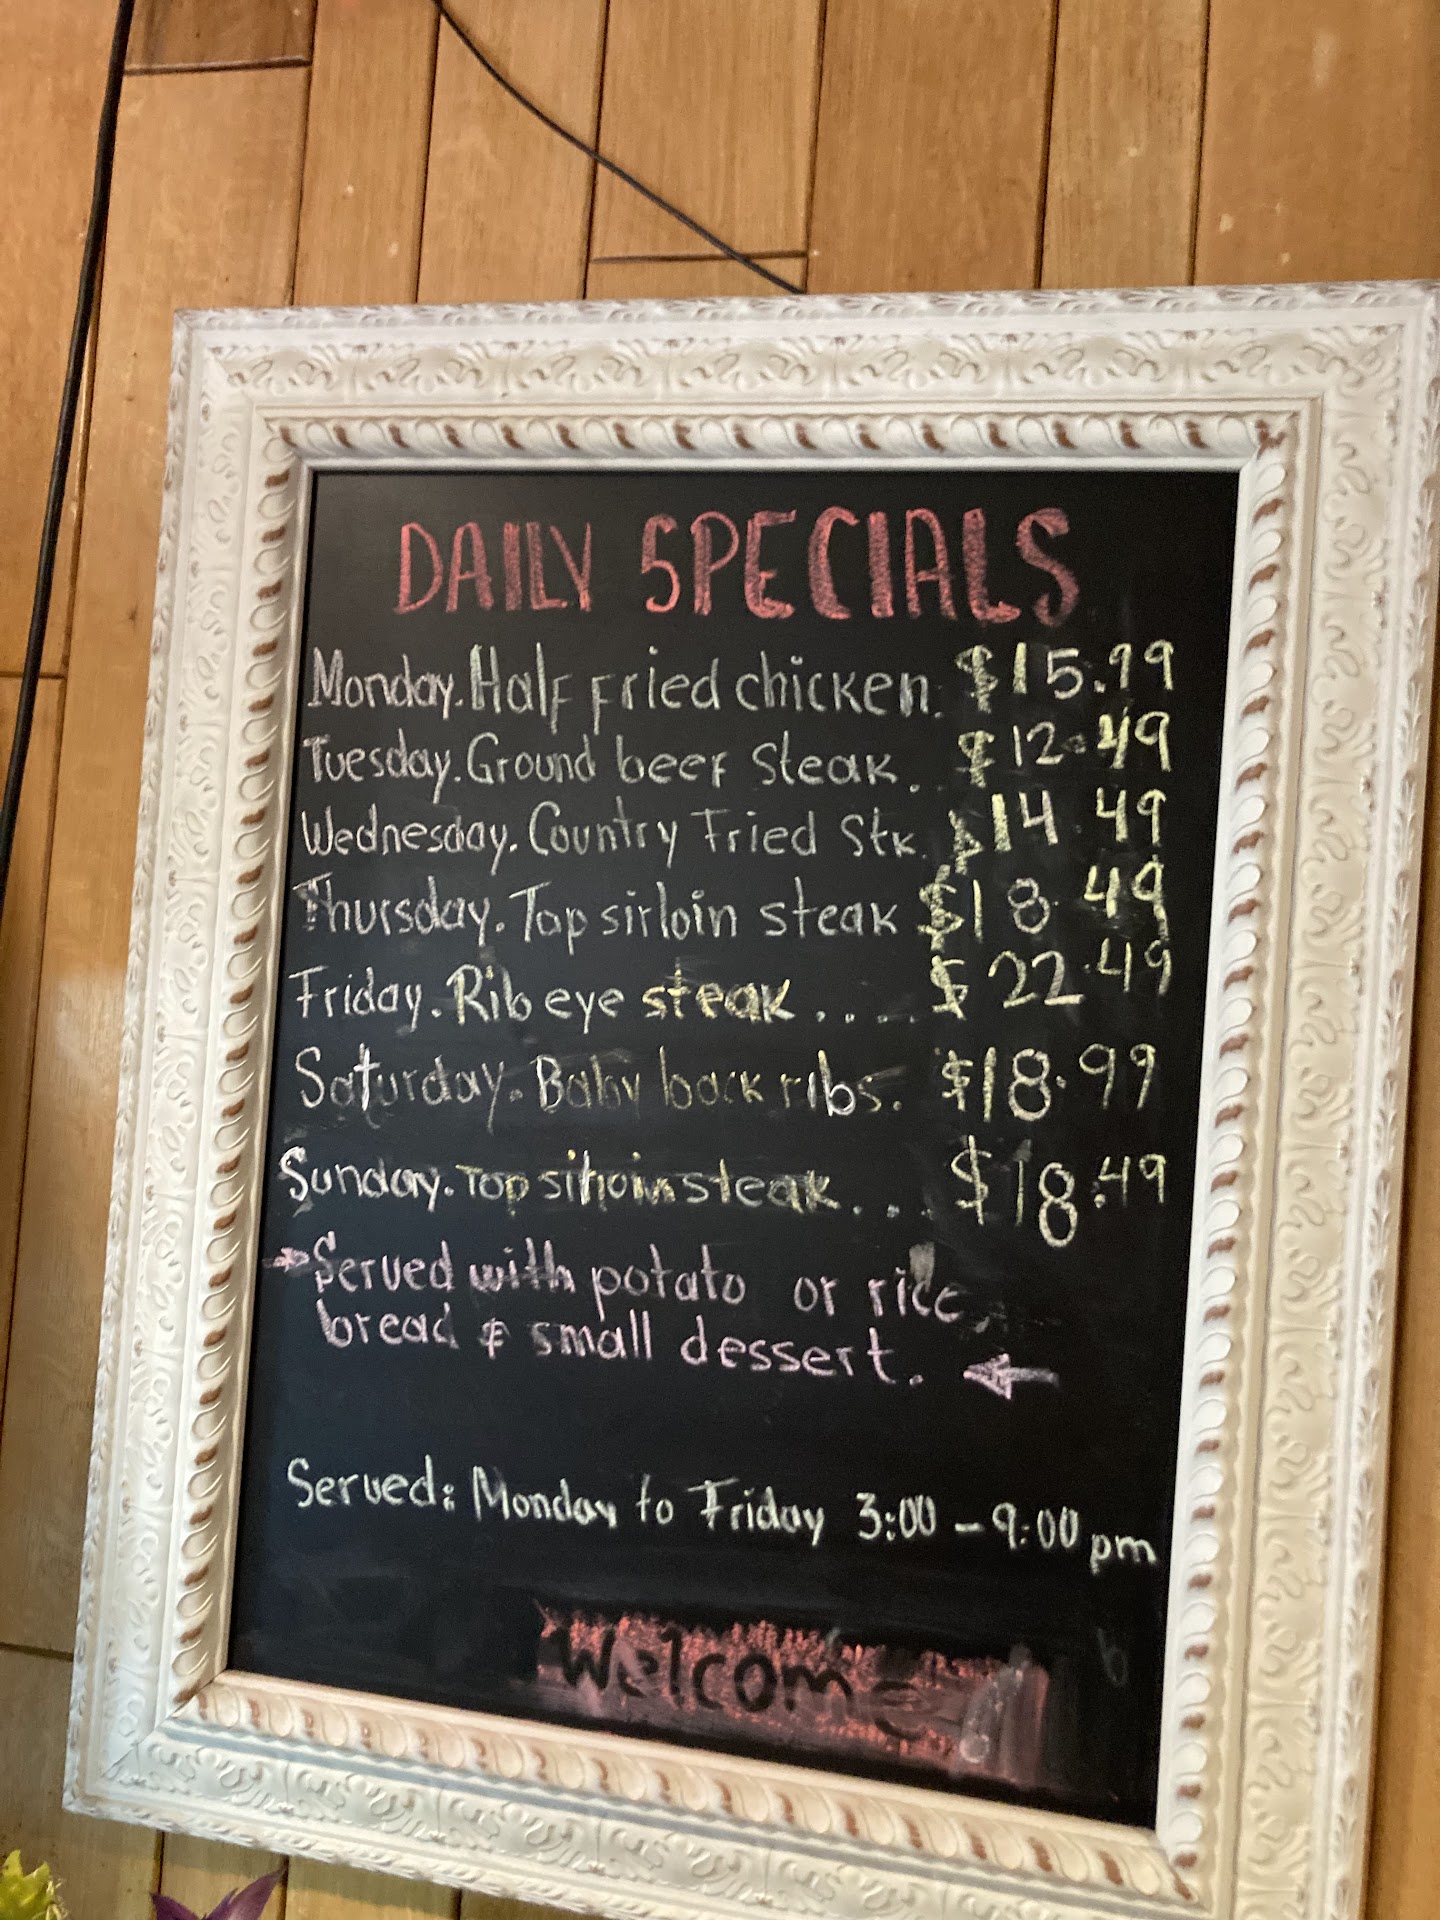 DAILY SPECIALS
Monday. Half fried chicken. $15.99
Tuesday. Ground beef steak. $12.49
Wednesday. Country Fried Stk. $14.49
Thursday. Top sirloin steak $18.49
Friday. Rib eye steak .... $22.49
Saturday. Baby back ribs. $18.99
Sunday. Top sirloin steak... $18.49
→ Served with potato or rice
bread & small dessert. ←
Served: Monday to Friday 3:00 - 9:00 pm
Welcome